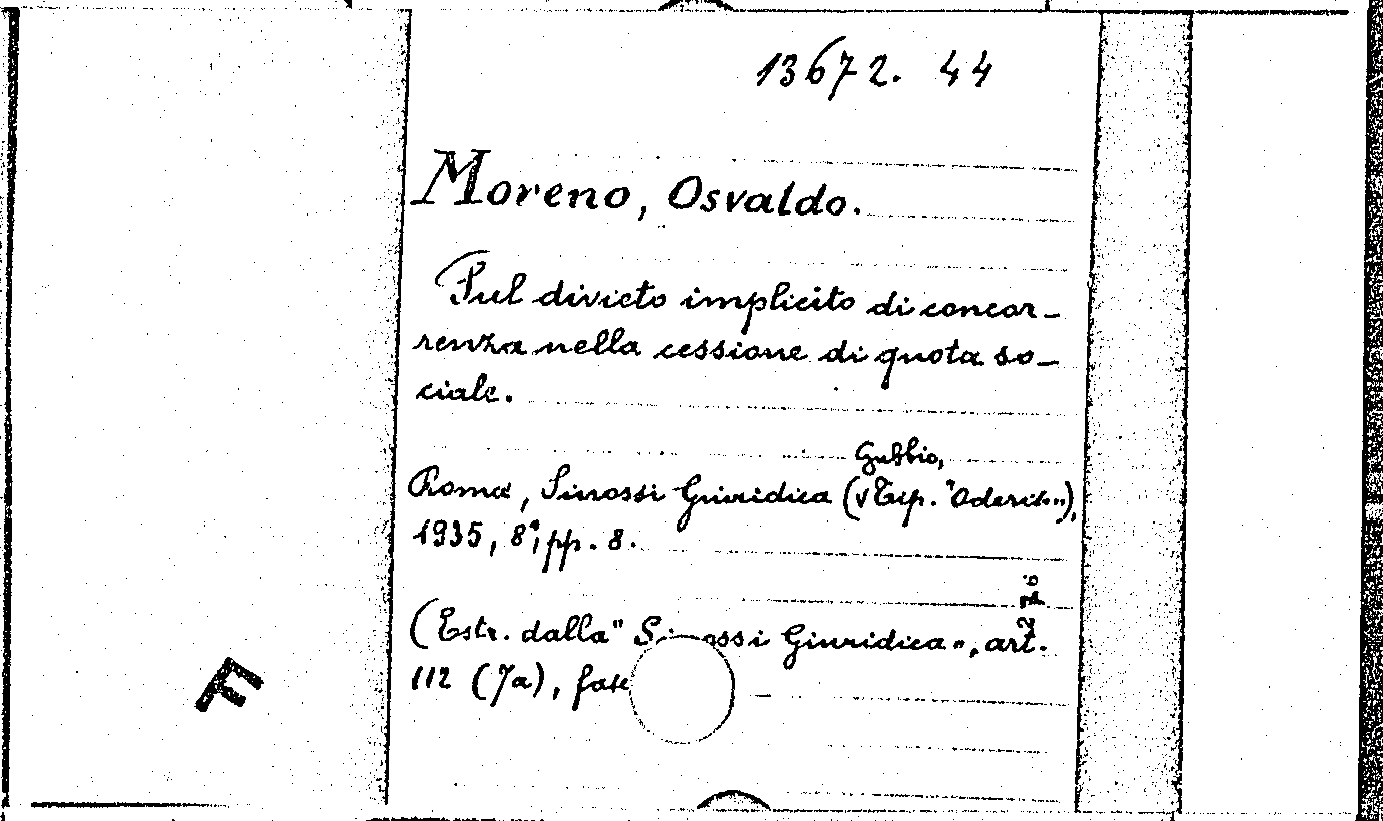 13672. 44
Moreno, Osvaldo.
Sul divieto implicito di concor-
renza nella cessione di quota so-
ciale.
Gubbio,
Roma, Sinossi Giuridica (Tip. "Oderisi"),
1935, 8°, pp. 8.
(Estr. dalla "Sinossi Giuridica", art.
112 (7a), fasc
F